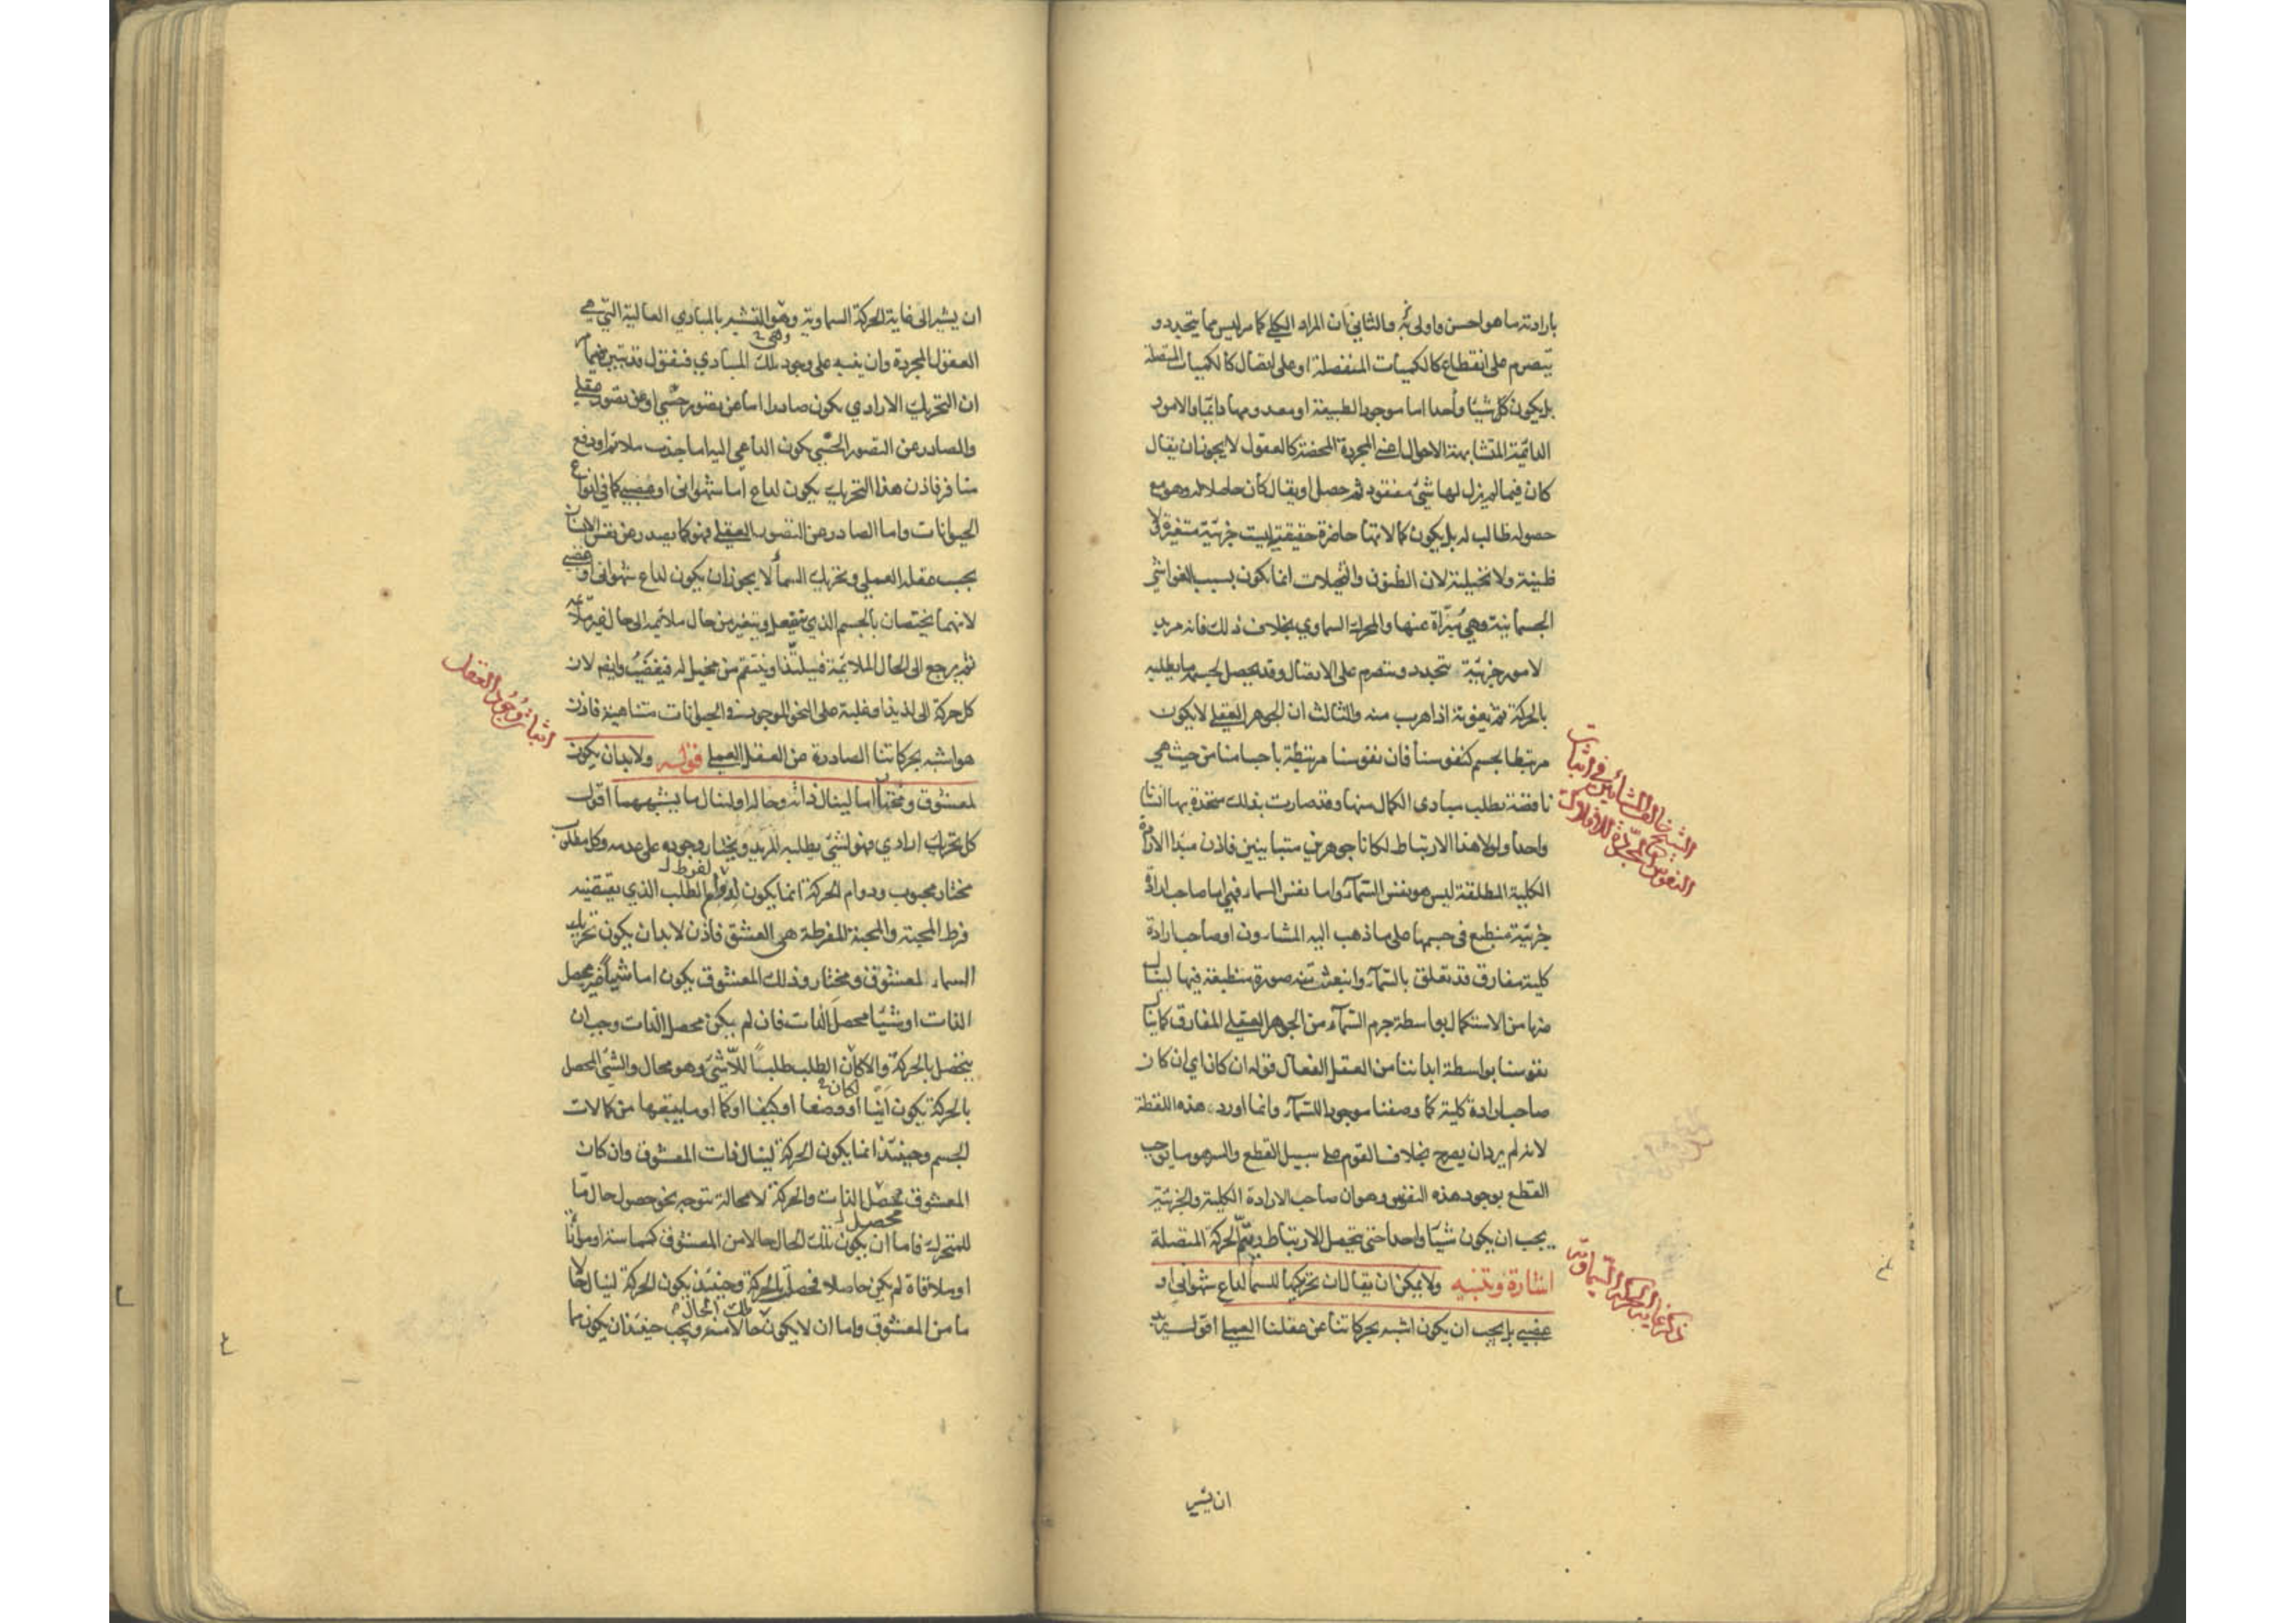 بارادته ما هو احسن واولى به والثاني ان المراد الكلي كما مر ليس مما يتجدد و
يتصرم على انقطاع كالكميات المنفصلة او على اتصال كالكميات المتصلة
بل يكون كل شيئا واحدا اما موجود الطبيعة او معدومها دائما والامور
الدائمة المتشابهة الاحوال اعني المجردة المحضة كالعقول لا يجوز ان يقال
كان فيما لم يزل لها شئ مفقود ثم حصل او يقال كان حاصلا له وهو مع
حصوله طالب له بل يكون كمالاتها حاضرة حقيقية ليست جزئية متغيرة لا
ظنية ولا تخيلية لان الظنون والتخيلات انما يكون بسبب الغواشي
الجسمانية وهي مبرأة عنها والمحرك السماوي بخلاف ذلك فانه مريد
لامور جزئية تتجدد وتتصرم على الاتصال وقد يحصل لجسمه ما يطلبه
بالحركة ثم يفوته اذا هرب منه والثالث ان الجوهر العقلي لا يكون
مرتبطا بجسم كنفوسنا فان نفوسنا مرتبطة باجسامنا من حيث هي
ناقصة تطلب مبادي الكمال منها وقد صارت بذلك متحدة بها انسانا
واحدا ولولا هذا الارتباط لكانا جوهرين متباينين فاذن مبدأ الارادة
الكلية المطلقة ليس هو نفس السماء واما نفس السماء فهي اما صاحب ارادة
جزئية منطبع في جسمها على ما ذهب اليه المشاءون او صاحب ارادة
كلية مفارق قد تعلق بالسماء وانبعث منه صورة منطبعة فيها لينال
منها من الاستكمال بواسطة جرم السماء من الجوهر العقلي المفارق كما ينال
نفوسنا بواسطة ابداننا من العقل الفعال قوله ان كان اي ان كان
صاحب ارادة كلية كما وصفنا موجودا للسماء وانما اورد هذه اللفظة
لانه لم يرد ان يصرح بخلاف القوم على سبيل القطع والسر هو ما يوجب
القطع بوجود هذه النفوس وهو ان صاحب الارادة الكلية والجزئية
يجب ان يكون شيئا واحدا حتى يحصل الارتباط ويتم الحركة المتصلة
اشارة وتنبيه ولا يمكن ان يقال ان تحريكها للسماء لداع شهواني او
غضبي بل يجب ان يكون اشبه بحركاتنا عن عقلنا العملي اقول يريد
الشيخ خالف المشائين في اثبات
النفوس المجردة للافلاك
ذكر غاية الحركة السماوية
ان يشير
ان يشير الى غاية الحركة السماوية وهو التشبه بالمبادي العالية التي هي
وهي
العقول المجردة وان ينبه على وجود تلك المبادي فنقول قد تبين فيما مر
ان التحريك الارادي يكون صادرا اما عن تصور حسي او عن تصور عقلي
والصادر عن التصور الحسي يكون الداعي اليه اما جذب ملائم او دفع
منافر فاذن هذا التحريك يكون لداع اما شهواني او غضبي كما في انواع
الحيوانات واما الصادر عن التصور العقلي فهو كما يصدر عن نفس الانسان
بحسب عقله العملي وتحريك السماء لا يجوز ان يكون لداع شهواني او غضبي
لانهما يختصان بالجسم الذي ينفعل ويتغير من حال ملائمة الى حال غير ملائمة
ثم يرجع الى الحال الملائمة فيلتذ او ينتقم من مخيل له فيغضب وايضا لان
كل حركة الى لذيذ او غلبة على النحو الموجود في الحيوانات متناهية فاذن
هو اشبه بحركاتنا الصادرة عن العقل العملي قوله ولا بد ان يكون
لمعشوق ومختار اما لينال ذاته وحاله او لينال ما يشبههما اقول
كل تحريك ارادي فهو لشئ يطلبه المريد ويختار وجوده على عدمه وكل مطلوب
لفرط
مختار محبوب ودوام الحركة انما يكون لدوام الطلب الذي يقتضيه
فرط المحبة والمحبة المفرطة هي العشق فاذن لا بد ان يكون تحريك
السماء لمعشوق ومختار وذلك المعشوق يكون اما شيئا غير محصل
الذات او شيئا محصل الذات فان لم يكن محصل الذات وجب ان
يتحصل بالحركة والا كان الطلب طلبا للاشئ وهو محال والشئ المحصل
لكان
بالحركة يكون اينا او وضعا او كيفا او كما او ما يتبعها من كمالات
الجسم وحينئذ انما يكون الحركة لينال ذات المعشوق وان كان
المعشوق محصل الذات والحركة لا محالة تتوجه نحو حصول حال ما
محصل
للمتحرك فاما ان يكون تلك الحال حالا من المعشوق كمماسة او موازاة
او ملاقاة لم يكن حاصلا فحصل بالحركة وحينئذ يكون الحركة لينال حالا
تلك الحال
ما من المعشوق واما ان لا يكون حالا منه ويجب حينئذ ان يكون مما
اثبات وجود العقل